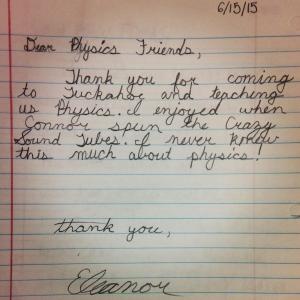 6/15/15
Dear Physics Friends,
Thank you for coming
to Tuckahoe and teaching
us Physics. I enjoyed when
Connor spun the Crazy
Sound Tubes. I never knew
this much about physics!
thank you,
Eleanor